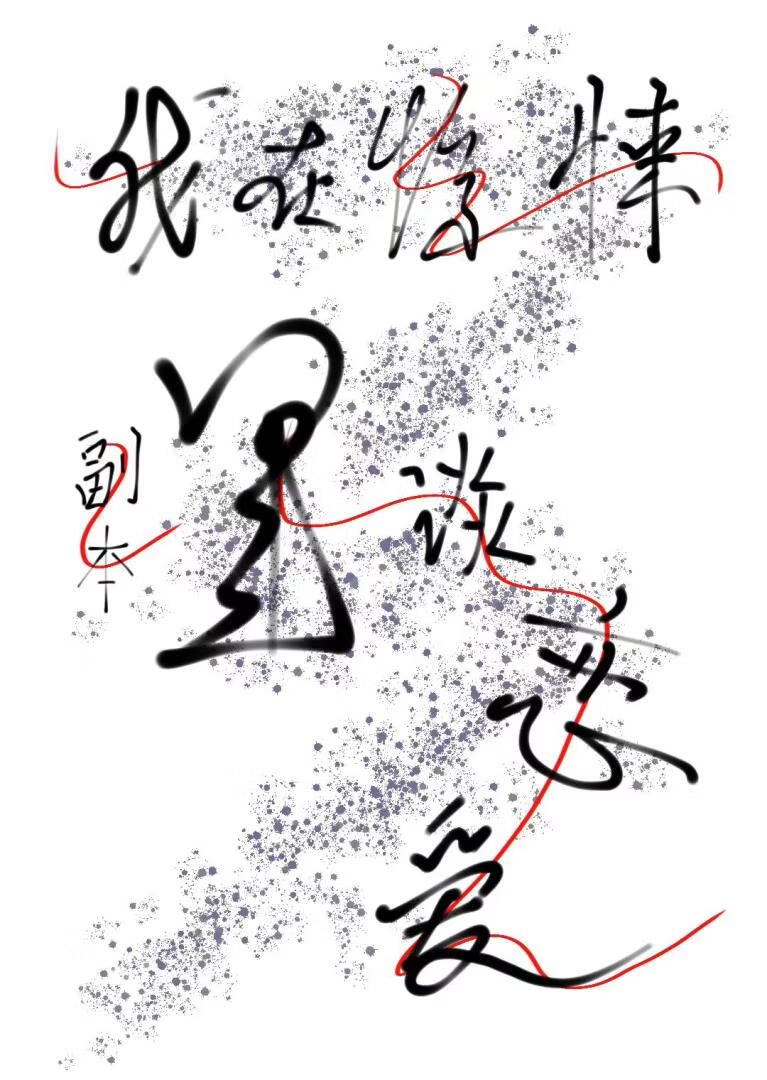 我在惊悚
副本
里谈恋爱